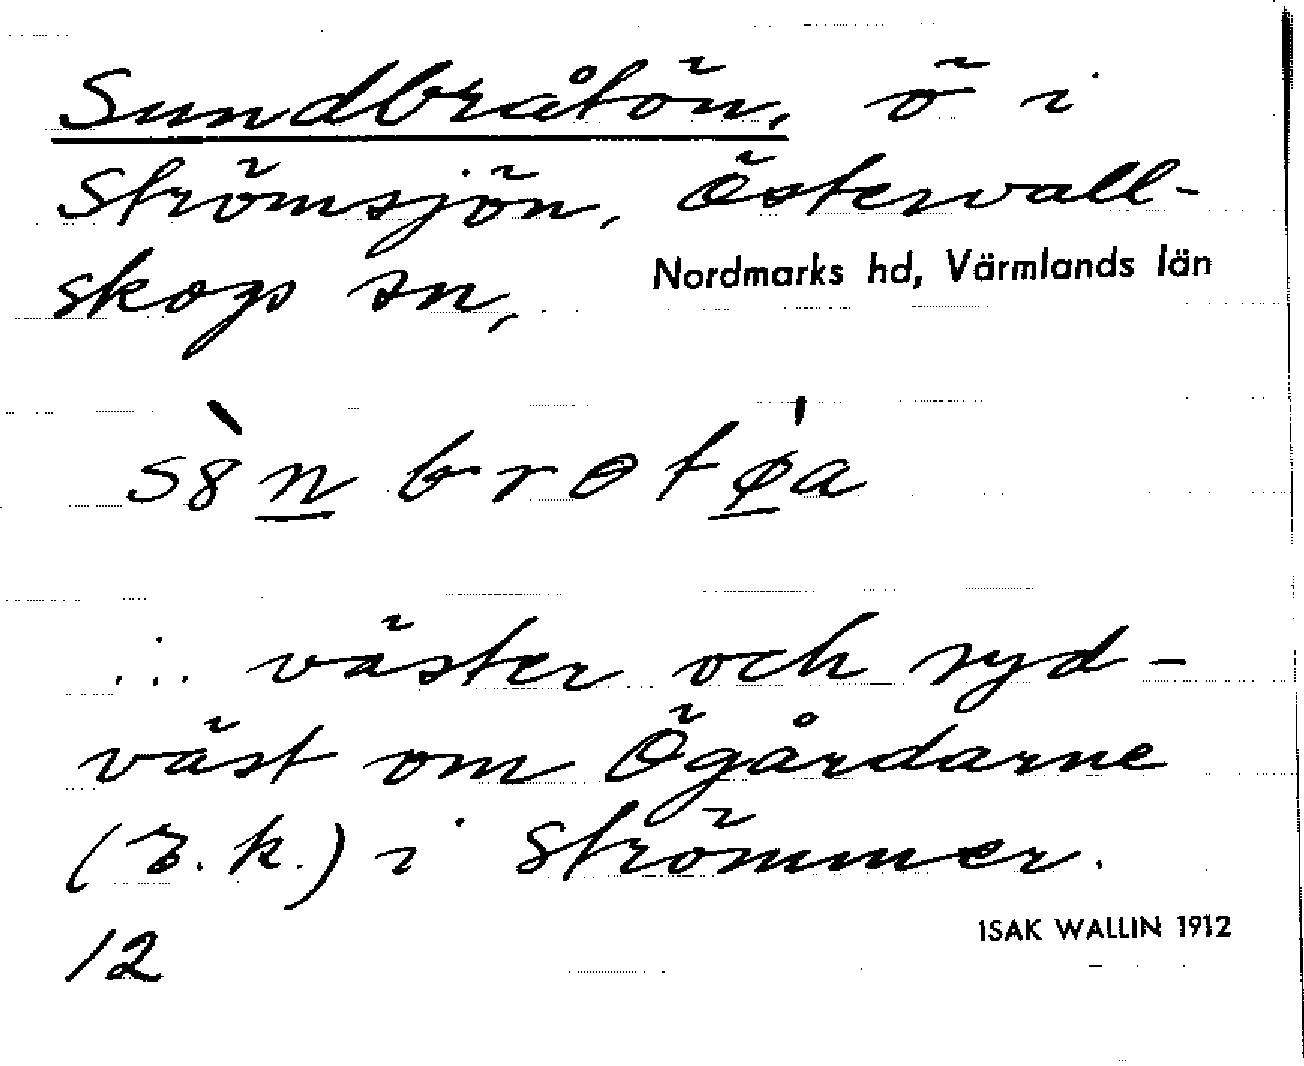 Sundbråtön, ö i
Strömsjön, Östervall-
skogs sn, Nordmarks hd, Värmlands län
s8̀n brotø̍a
... väster och syd-
väst om Ögårdarne
(r.k.) i Strömmer.
12
ISAK WALLIN 1912